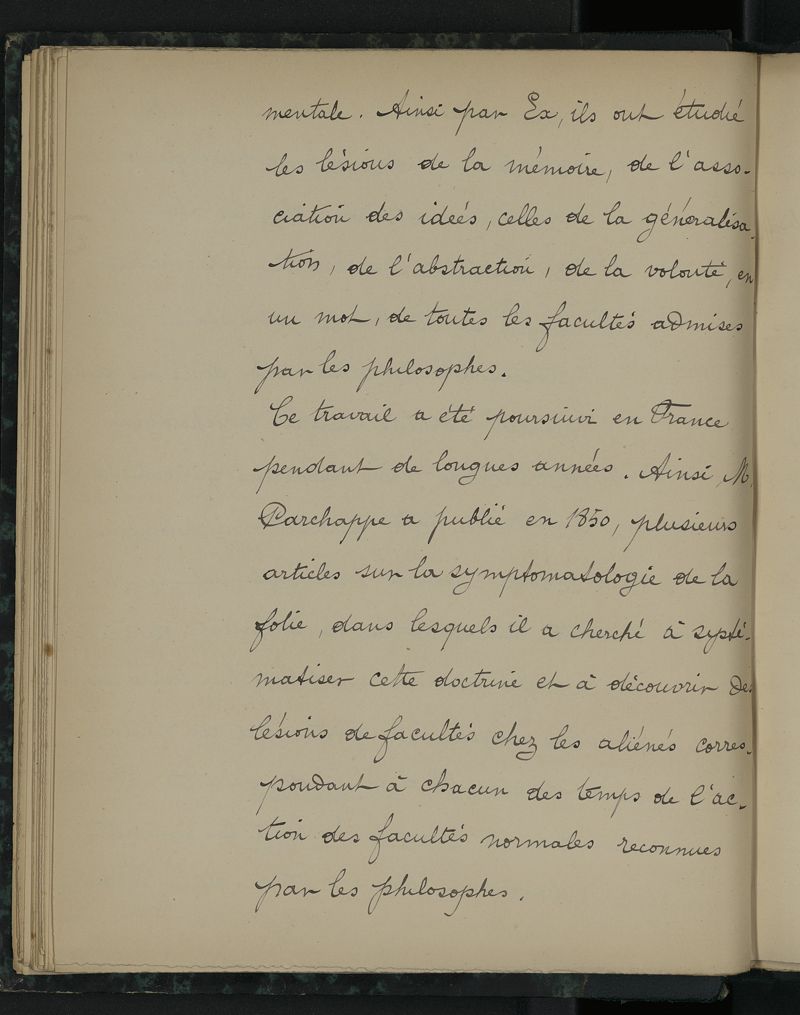 mentale. Ainsi par Ex, ils ont étudié
les lésions de la mémoire, de l'asso-
ciation des idées, celles de la généralisa-
tion, de l'abstraction, de la volonté, en
un mot, de toutes les facultés admises
par les philosophes.
Ce travail a été poursuivi en France
pendant de longues années. Ainsi, M.
Parchappe a publié en 1850, plusieurs
articles sur la symptomatologie de la
folie, dans lesquels il a cherché à systé-
matiser cette doctrine et à découvrir des
lésions de facultés chez les aliénés corres-
pondant à chacun des temps de l'ac-
tion des facultés normales reconnues
par les philosophes.